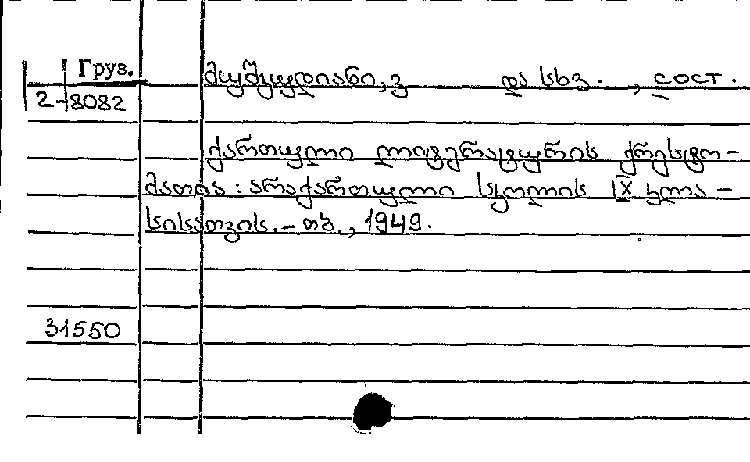 Груз.
მუშკუდიანი, ვ და სხვ. , сост.
2-8082
ქართული ლიტერატურის ქრესტო-
მათია : არაქართული სკოლის IX კლა-
სისათვის. – თბ., 1949.
31550